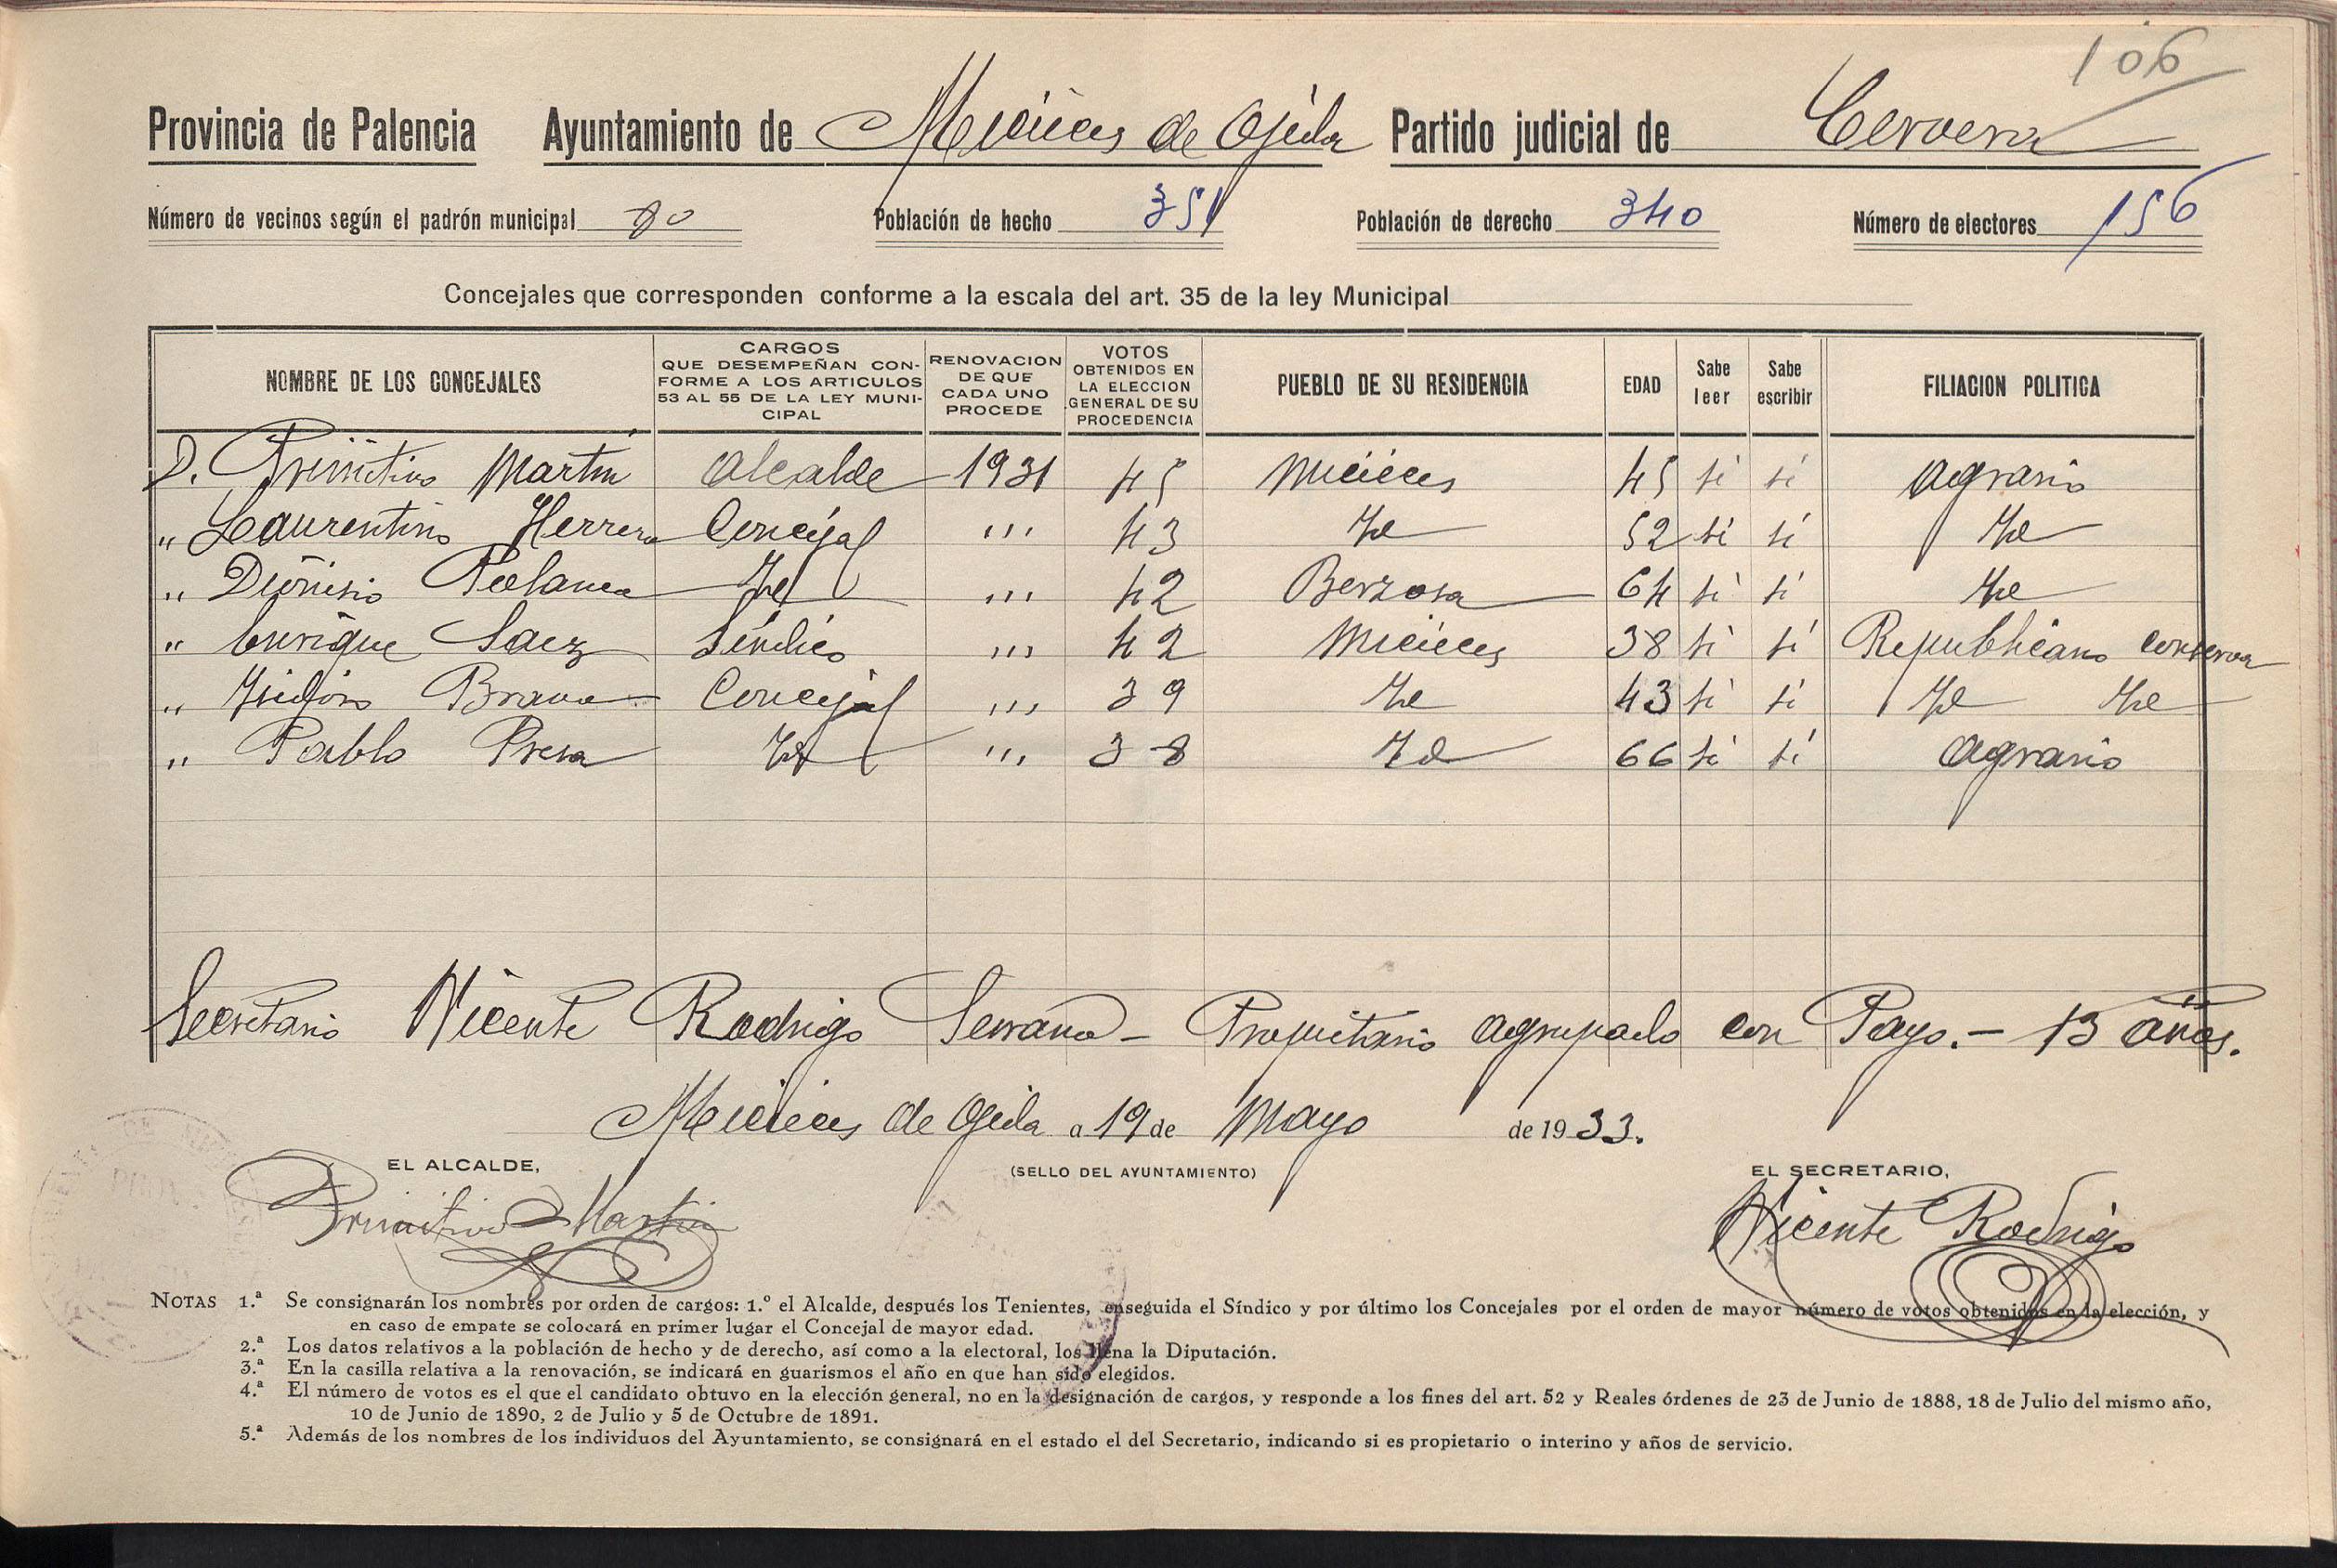 106
Provincia de Palencia Ayuntamiento de Micieces de Ojeda Partido judicial de Cervera
Número de vecinos según el padrón municipal 80 Población de hecho 351 Población de derecho 340 Número de electores 156
Concejales que corresponden conforme a la escala del art. 35 de la ley Municipal
NOMBRE DE LOS CONCEJALES CARGOS QUE DESEMPEÑAN CONFORME A LOS ARTICULOS 53 AL 55 DE LA LEY MUNICIPAL RENOVACION DE QUE CADA UNO PROCEDE VOTOS OBTENIDOS EN LA ELECCION GENERAL DE SU PROCEDENCIA PUEBLO DE SU RESIDENCIA EDAD Sabe leer Sabe escribir FILIACION POLITICA
D. Primitivo Martín Alcalde 1931 45 Micieces 45 si si Agrario
" Laurentino Herrero Concejal "' 43 Id 52 si si Id
" Dionisio Polanco Id "' 42 Berzosa 64 si si Id
" Enrique Saez Síndico "' 42 Micieces 38 si si Republicano conserva
" Isidoro Bravo Concejal "' 39 Id 43 si si Id Id
" Pablo Presa Id "' 38 Id 66 si si Agrario
Secretario Vicente Rodrigo Serrano - Propietario agrupado con Payo. - 13 años.
Micieces de Ojeda a 19 de Mayo de 1933.
EL ALCALDE, (SELLO DEL AYUNTAMIENTO) EL SECRETARIO,
Primitivo Martin Vicente Rodrigo
NOTAS 1.ª Se consignarán los nombres por orden de cargos: 1.º el Alcalde, después los Tenientes, enseguida el Síndico y por último los Concejales por el orden de mayor número de votos obtenidos en la elección, y
en caso de empate se colocará en primer lugar el Concejal de mayor edad.
2.ª Los datos relativos a la población de hecho y de derecho, así como a la electoral, los llena la Diputación.
3.ª En la casilla relativa a la renovación, se indicará en guarismos el año en que han sido elegidos.
4.ª El número de votos es el que el candidato obtuvo en la elección general, no en la designación de cargos, y responde a los fines del art. 52 y Reales órdenes de 23 de Junio de 1888, 18 de Julio del mismo año,
10 de Junio de 1890, 2 de Julio y 5 de Octubre de 1891.
5.ª Además de los nombres de los individuos del Ayuntamiento, se consignará en el estado el del Secretario, indicando si es propietario o interino y años de servicio.